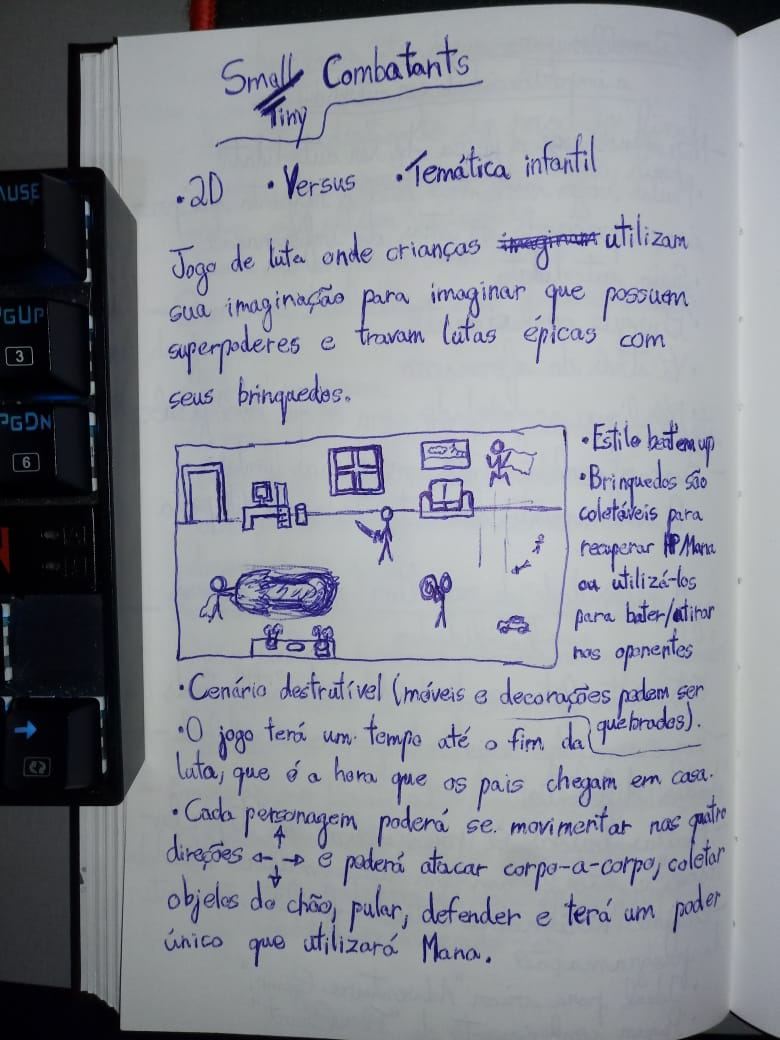 Small Combatants
Tiny
• 2D • Versus • Temática infantil
Jogo de luta onde crianças imaginam utilizam
sua imaginação para imaginar que possuem
superpoderes e travam lutas épicas com
seus brinquedos.
• Estilo beat'em up
• Brinquedos são
coletáveis para
recuperar HP Mana
ou utilizá-los
para bater/atirar
nos oponentes
• Cenário destrutível (móveis e decorações podem ser
quebrados).
• O jogo terá um tempo até o fim da
luta, que é a hora que os pais chegam em casa.
• Cada personagem poderá se movimentar nas quatro
direções ←↑↓→ e poderá atacar corpo-a-corpo, coletar
objetos do chão, pular, defender e terá um poder
único que utilizará Mana.
AUSE
PGUP
3
PGDN
6